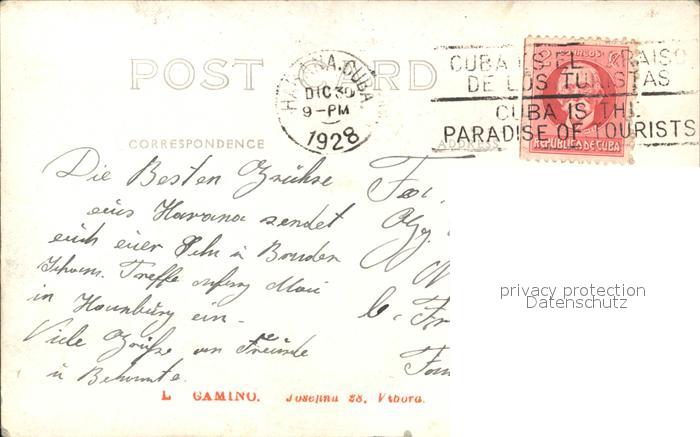 POST CARD
HABANA, CUBA
DIC 30
9-PM
1928
CUBA ES EL PARAISO
DE LOS TURISTAS
CUBA IS THE
PARADISE OF TOURISTS
REPUBLICA DE CUBA
CORRESPONDENCE
ADDRESS
Die Besten Grühse
aus Havana sendet
euch euer Sohn u Bruder
Treffe anfang Mai
in Hamburg ein -
Viele Grüße an Freunde
u Bekannte.
privacy protection
Datenschutz
L GAMINO. Josefina 28, Vibora.